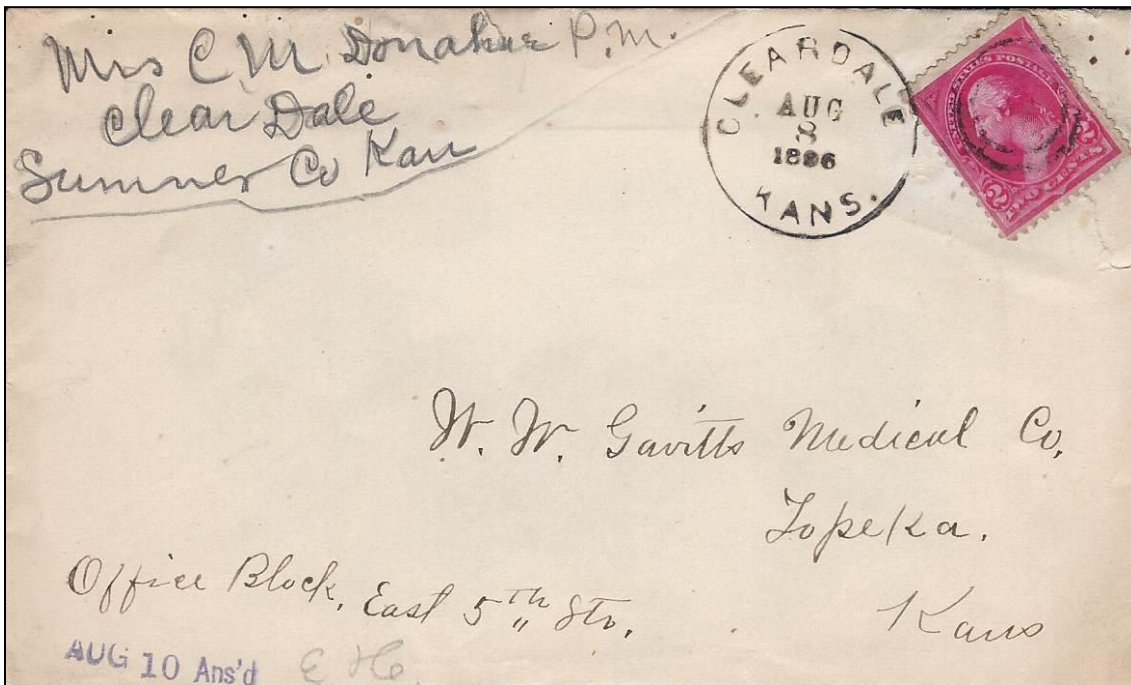 Mrs C M. Donahue P.M.
Clear Dale
Sumner Co Kan
CLEARDALE
AUG
8
1896
KANS.
UNITED STATES POSTAGE
2 TWO CENTS 2
W. W. Gavitts Medical Co,
Topeka.
Office Block, East 5th Str,
Kans
AUG 10 Ans'd